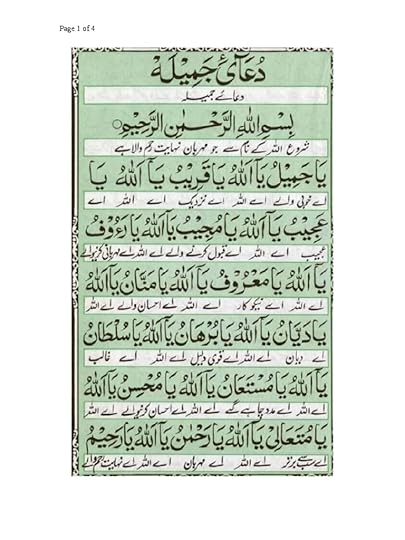 Page 1 of 4
دُعَائے جَمِیْلَہ
دعائے جمیلہ
بِسْمِ اللهِ الرَّحْمٰنِ الرَّحِيْمِ
شروع اللہ کے نام سے جو مہربان نہایت رحم والا ہے
يَا جَمِيْلُ يَا اَللهُ يَا قَرِيْبُ يَا اَللهُ يَا
اے خوبی والے اے اللہ اے نزدیک اے اللہ اے
عَجِيْبُ يَا اَللهُ يَا مُجِيْبُ يَا اَللهُ يَا رَءُوْفُ
عجیب اے اللہ اے قبول کرنے والے اے اللہ اے مہربانی کرنیوالے
يَا اَللهُ يَا مَعْرُوْفُ يَا اَللهُ يَا مَنَّانُ يَا اَللهُ
اے اللہ اے نیکوکار اے اللہ اے احسان والے اے اللہ
يَا دَيَّانُ يَا اَللهُ يَا بُرْهَانُ يَا اَللهُ يَا سُلْطَانُ
اے دیان اے اللہ اے قوی دلیل اے اللہ اے غالب
يَا اَللهُ يَا مُسْتَعَانُ يَا اَللهُ يَا مُحْسِنُ يَا اَللهُ
اے اللہ اے مدد چاہے گئے اے اللہ اے احسان کرنیوالے اے اللہ
يَا مُتَعَالِيْ يَا اَللهُ يَا رَحْمٰنُ يَا اَللهُ يَا رَحِيْمُ
اے سب سے برتر اے اللہ اے مہربان اے اللہ اے نہایت رحم والے